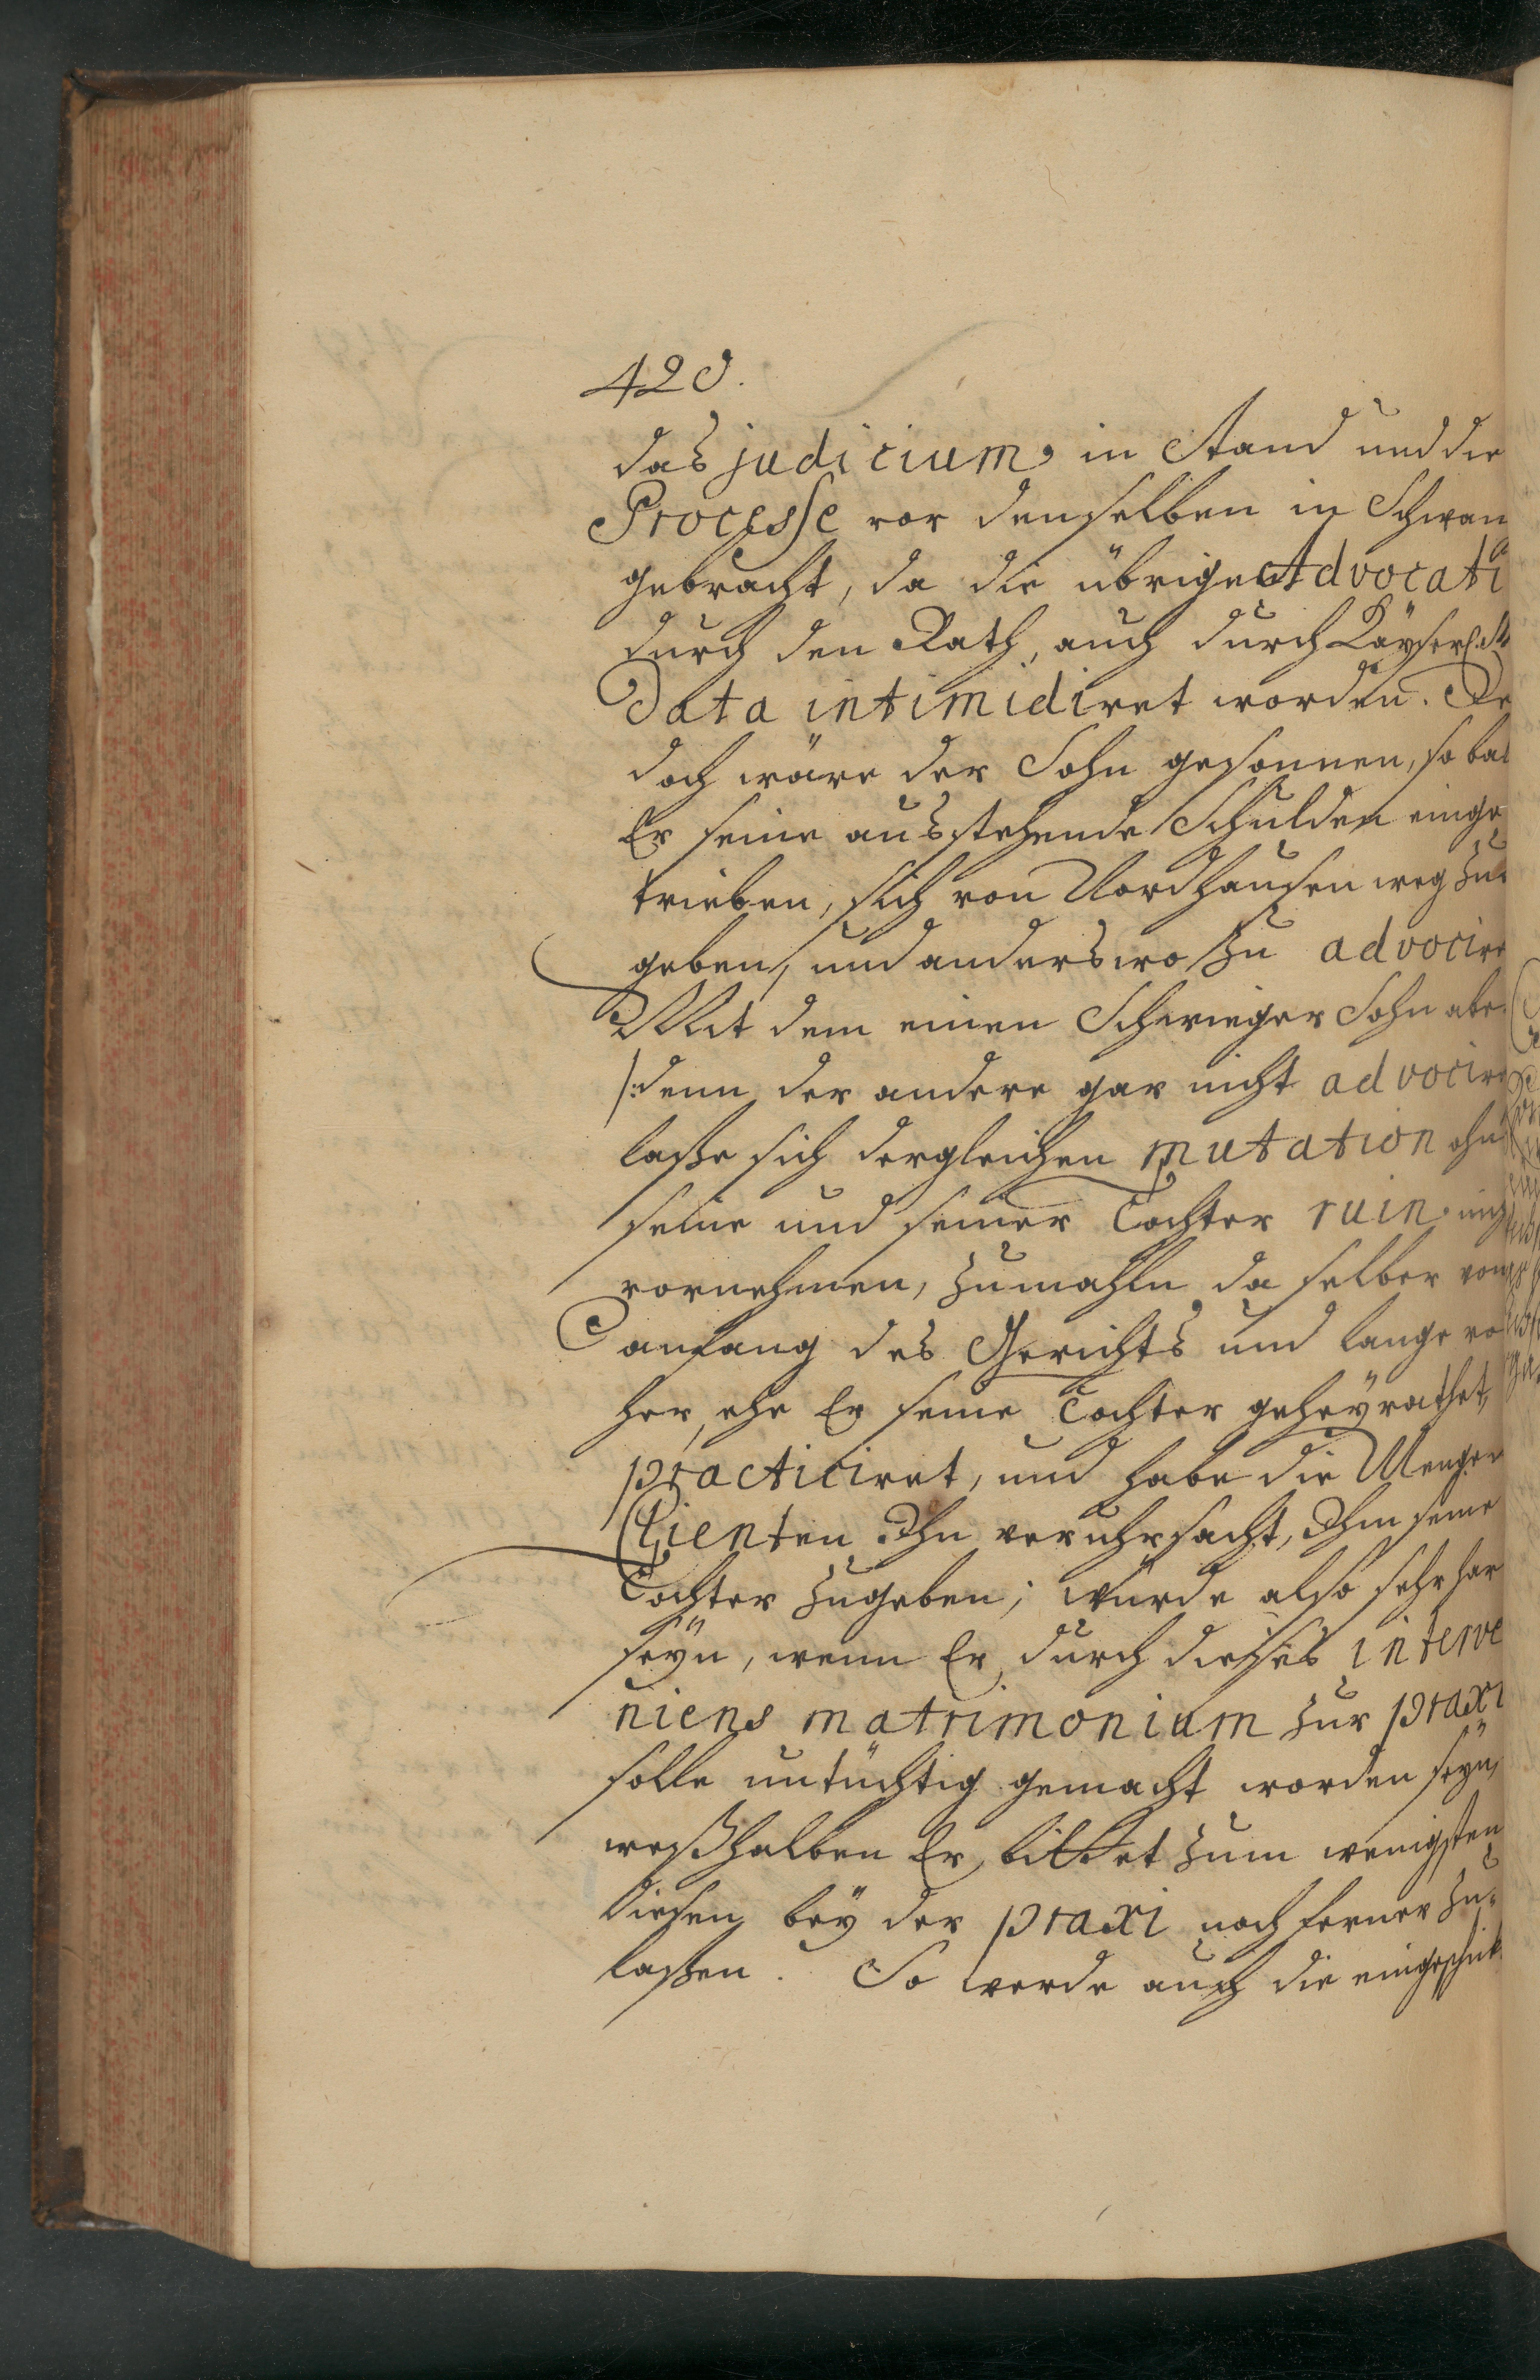 420.
das judicium in Stand und die
Processe vor denselben in Schwan
gebracht, da die übrigen Advocati
durch den Rath, auch durch Käyserl.
Data intimidiret worden. Je
doch wäre der Sohn gesonnen, so bal
Er seine ausstehende Schulden einge
trieben, sich von Nordhausen weg zu
geben, und anderswo zu advocire
Mit dem einen Schwieger Sohn aber
/: denn der andere gar nicht advocire
laße sich dergleichen mutation ohn
seine und seiner Tochter ruin nich
vornehmen, zumahln da selber von
anfang des Gerichts und lange vo
her, ehe Er seine Tochter geheyrathet,
practiciret, und habe die Menge
Clienten Ihn veruhrsacht, Ihm seine
Tochter zugeben; würde also sehr har
seyn, wenn Er durch dieses interve
niens matrimonium zur praxi
solle untüchtig gemacht worden seyn,
weßhalben Er bittet zum wenigsten
diesen bey der praxi noch ferner zu
laßen. So werde auch die eingeschick